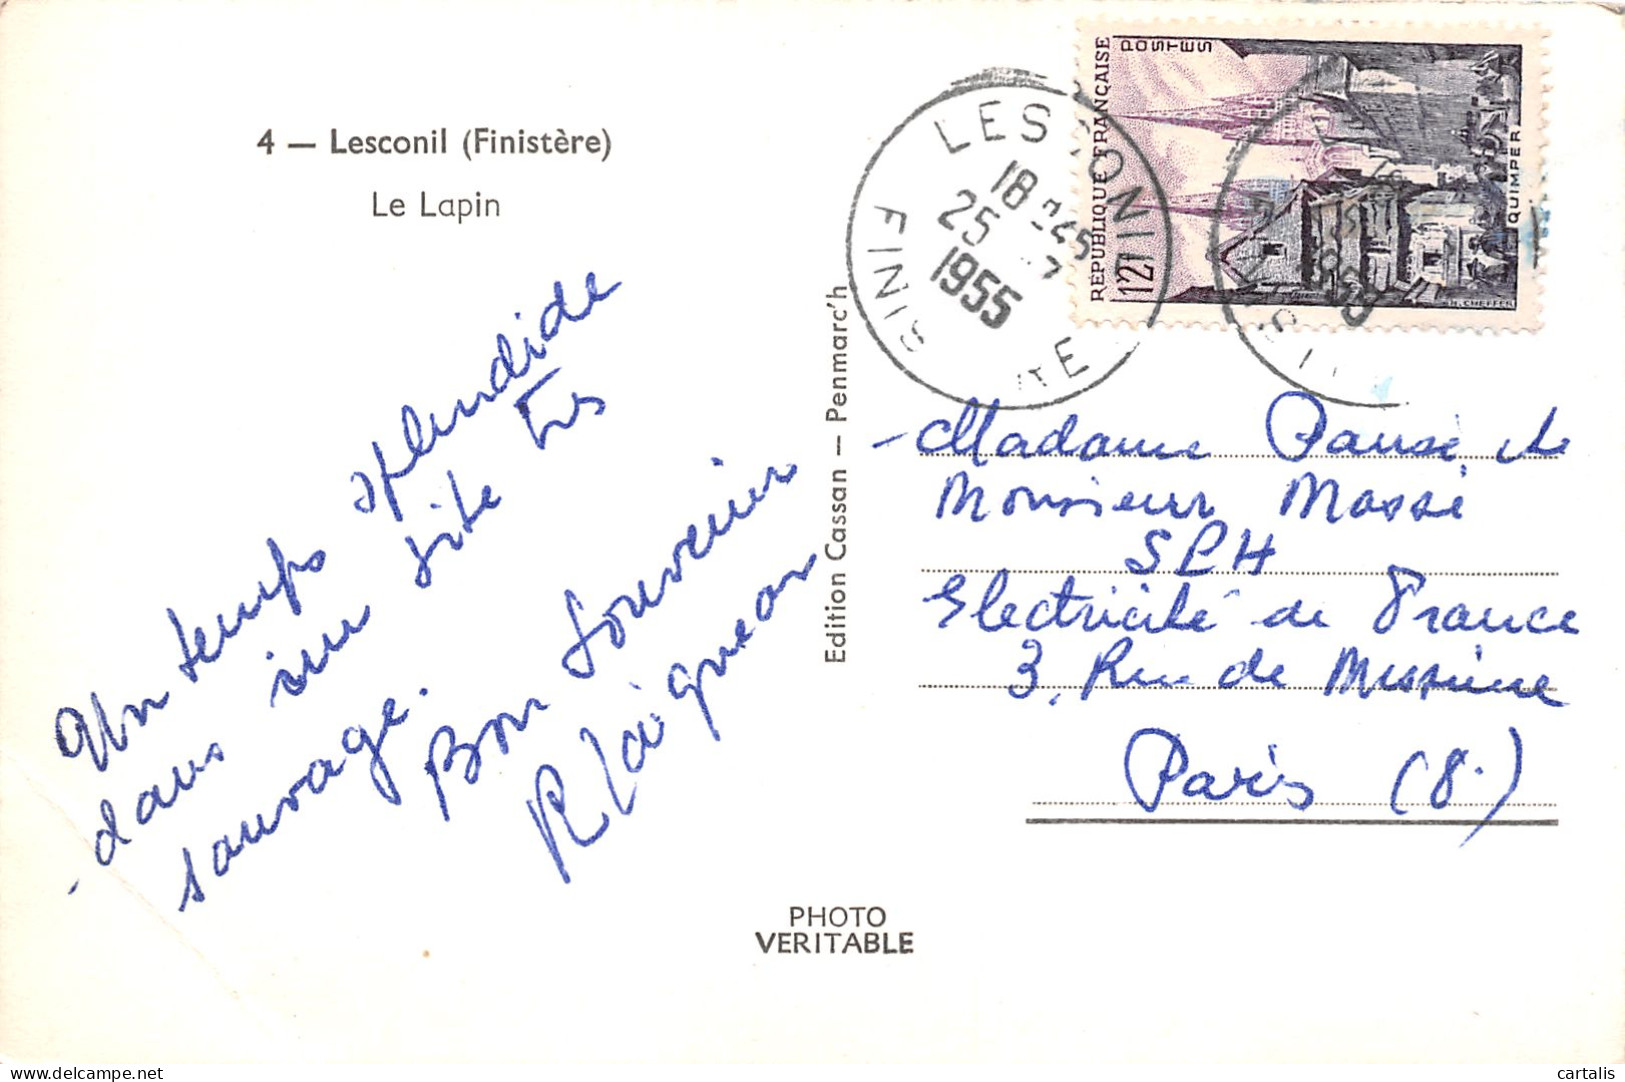 4 — Lesconil (Finistère)
Le Lapin
Un temps splendide
dans un site très
sauvage.
Bon souvenir
Edition Cassan — Penmarc'h
PHOTO
VERITABLE
LESCONIL
18 45
25
1955
FINISTE
POSTES
REPUBLIQUE FRANÇAISE
12F
QUIMPER
H. CHEFFER
Madame et
Monsieur Massé
Electricité de France
3, Rue de Messine
Paris (8.)
delcampe.net
cartalis